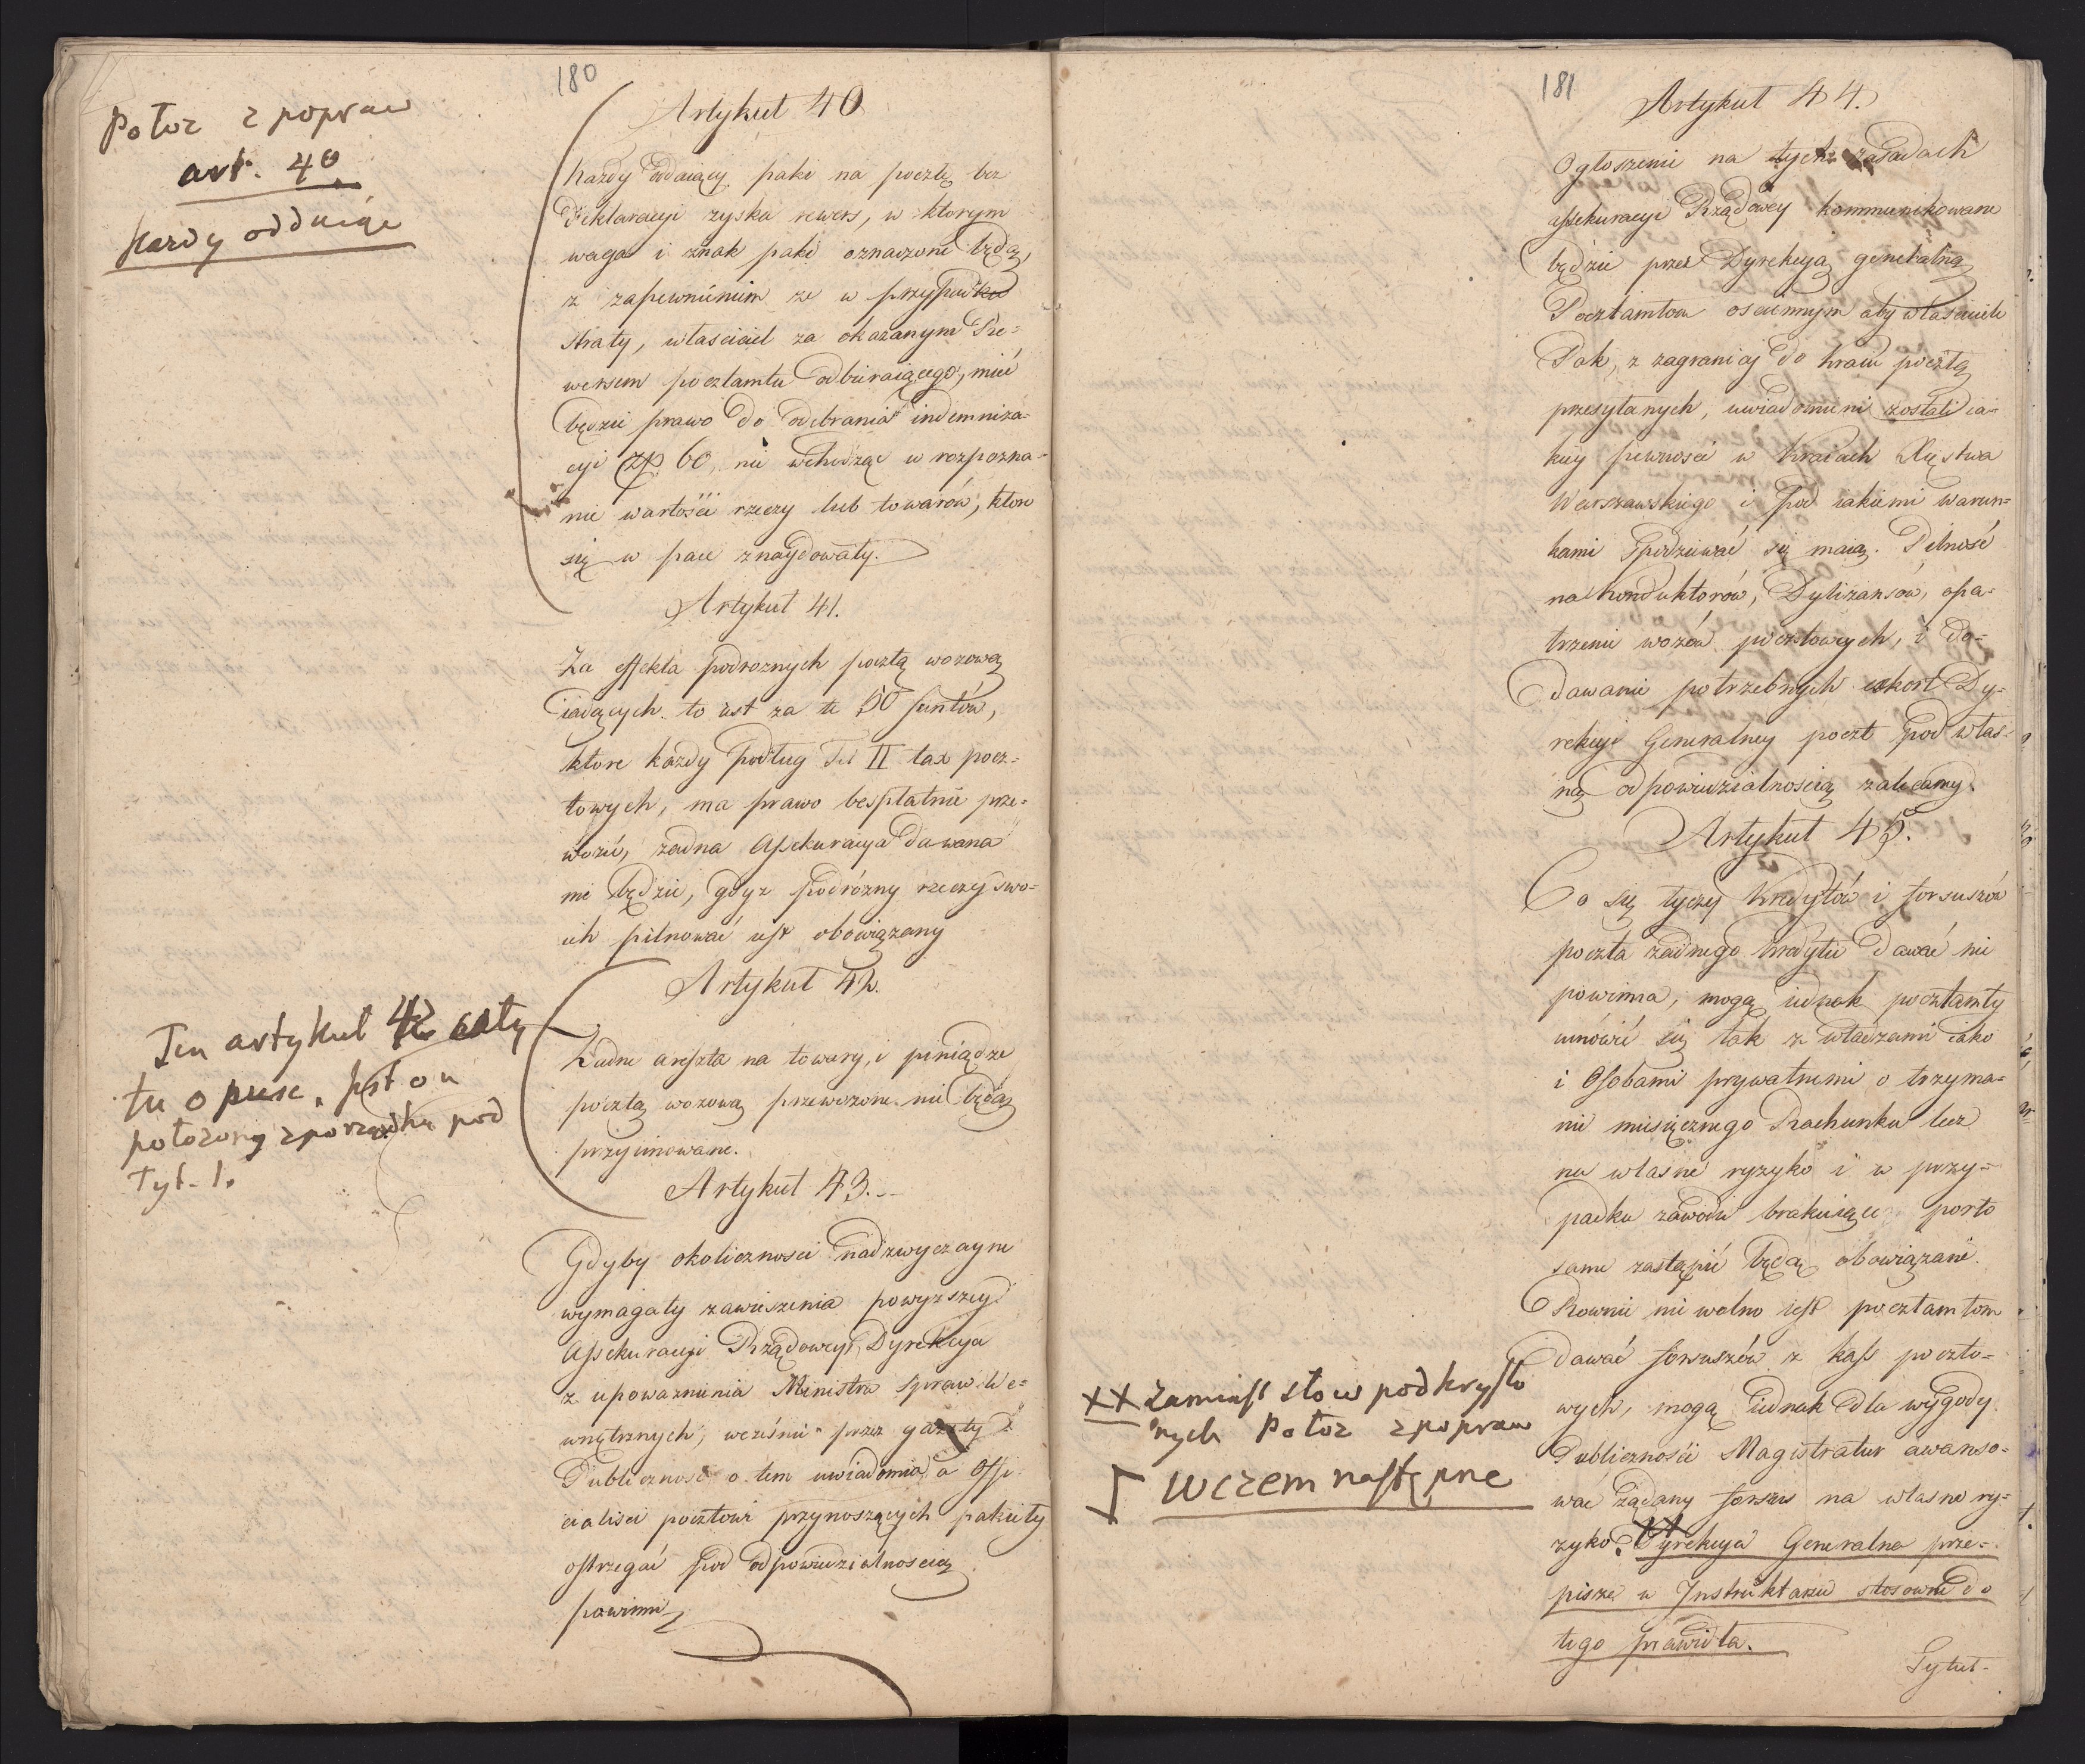 180
Połoz z popraw
art. 40
Kazdy oddaiąc
Artykuł 40
Kazdy oddaiący paki na pocztę bez
Deklaracyi zyska rewers, w ktorym
waga i znak paki oznaczone będą,
z zapewnieniem ze w przypadku
straty, właściciel za okazanym Re=
wersem pocztamtu odbieraiącego, mieć
będzie prawo do odebrania indemniza=
cyi zp. 60, nie wchodząc w rozpozna=
nie wartości rzeczy lub towarów, ktore
się w pace znaydowały.
Artykuł 41.
Za effekta podroznych pocztą wozową
iadących to iest za te 50 funtów,
ktore kazdy podług Tit II tax pocz=
towych, ma prawo bezpłatnie prze=
wozić, zadna Assekuracya dawana
nie będzie, gdyz podrózny rzeczy swo=
ich pilnować iest obowiązany
Ten artykuł 42 cały
tu opusc, jest on
połozony z porządku pod
Tyt. 1.
Artykuł 42.
Zadne areszta na towary, i pieniądze
pocztą wozową przewozone nie będą
przyimowane.
Artykuł 43.
Gdyby okoliczności nadzwyczayne
wymagały zawieszenia powyzszey
Assekuracyi Rządowey, Dyrekcya
z upowaznienia Ministra Spraw We=
wnętrznych, wcześnie przez gazety
Publiczność o tem uwiadomia, a Offi-
cialisci pocztowi przynoszących pakiety
ostrzegać pod odpowiedzialnoscią
powinni
181
Artykuł 44.
Ogłoszenie na tych zasadach
assekuracyi Rządowey kommunikowane
będzie przez Dyrekcyą generalną
Pocztamtom osciennym aby właściciele
Pak, z zagranicy do kraiu pocztą
przesyłanych, uwiadomieni zostali ia=
kiey pewności w Kraiach Xięstwa
Warszawskiego i pod iakiemi warun=
kami spodziewać się maią. Pilność
na Konduktorów, Dylizansów, opa=
trzenie wozów pocztowych, i do=
dawanie potrzebnych eskort Dy=
rekcyi Generalney poczt pod włas=
ną odpowiedzialnoscią zalecamy.
Artykuł 45.
Co się tyczy kredytów i forsuszów
poczta zadnego kredytu dawać nie
powinna, mogą iednak pocztamty
umówić się tak z władzami iako
i Osobami prywatnemi o trzyma=
nie miesięcznego Rachunku lecz
na własne ryzyko i w przy=
padku zawodu brakuiące porto
same zastąpić będą obowiązane.
Rownie nie wolno iest pocztamtom
dawać forszuszów z kass poczto=
wych, mogą iednak dla wygody
Publiczności Magistratur awanso=
wać ządany forszus na własne ry=
zyko. XX Dyrekcya Generalna prze=
pisze w Instruktarzu stosowne do
tego prawidła.
XX Zamiast słow podkryslo
nych Połoz z popraw
wczem następne
Tytuł-